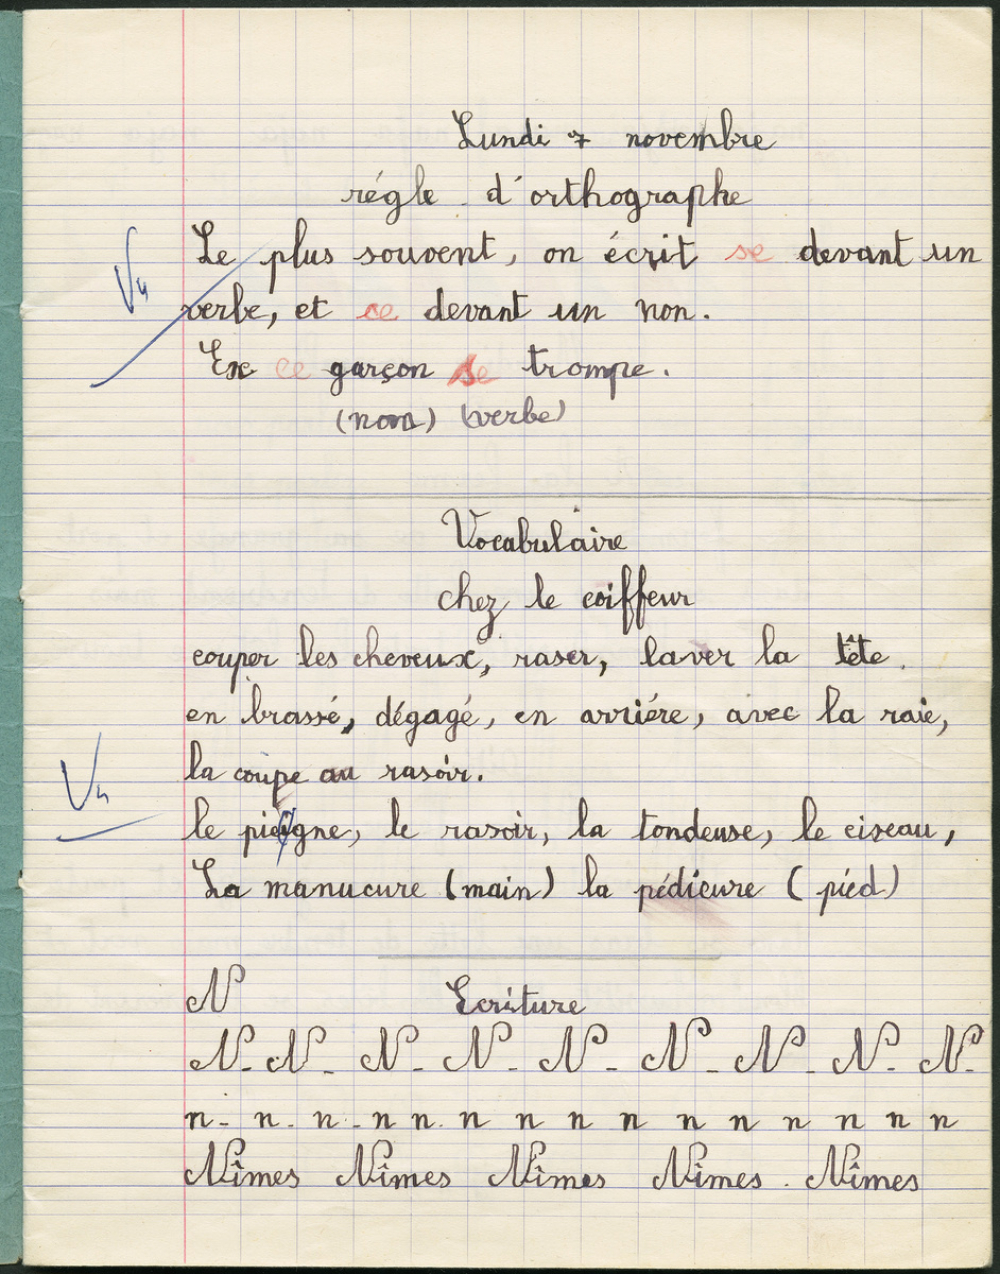 Lundi 7 novembre
régle d'orthographe
Le plus souvent, on écrit se devant un
verbe, et ce devant un non.
Ex ce garçon se trompe.
(nom) (verbe)
Vocabulaire
chez le coiffeur
couper les cheveux, raser, laver la tête.
en brassé, dégagé, en arriére, avec la raie,
la coupe au rasoir.
le peigne, le rasoir, la tondeuse, le ciseau,
La manucure (main) la pédicure (pied)
N Ecriture
N - N - N - N - N - N - N - N - N -
n - n - n - n n n n n n n n n n n n
Nîmes Nîmes Nîmes Nîmes. Nîmes